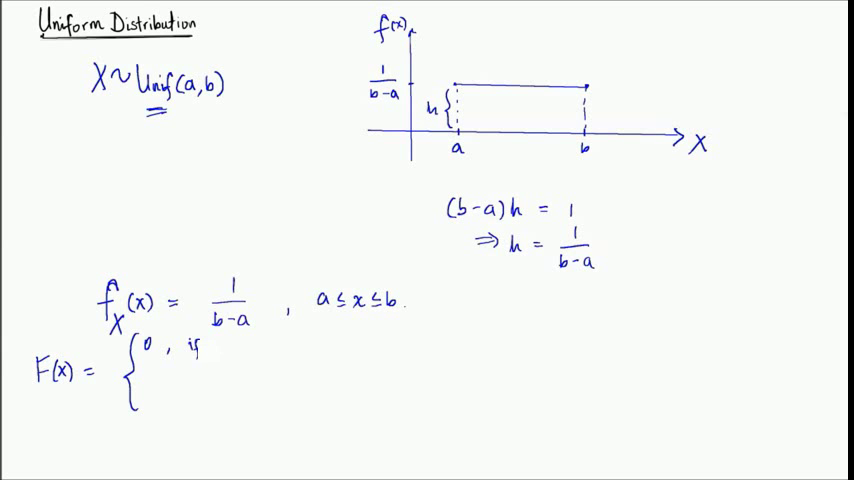 Uniform Distribution
X ~ Unif(a,b)
f(x)
1/(b-a)
h
a b X
(b-a)h = 1
⇒ h = 1/(b-a)
f_X(x) = 1/(b-a) , a ≤ x ≤ b.
F(x) = { 0 , if